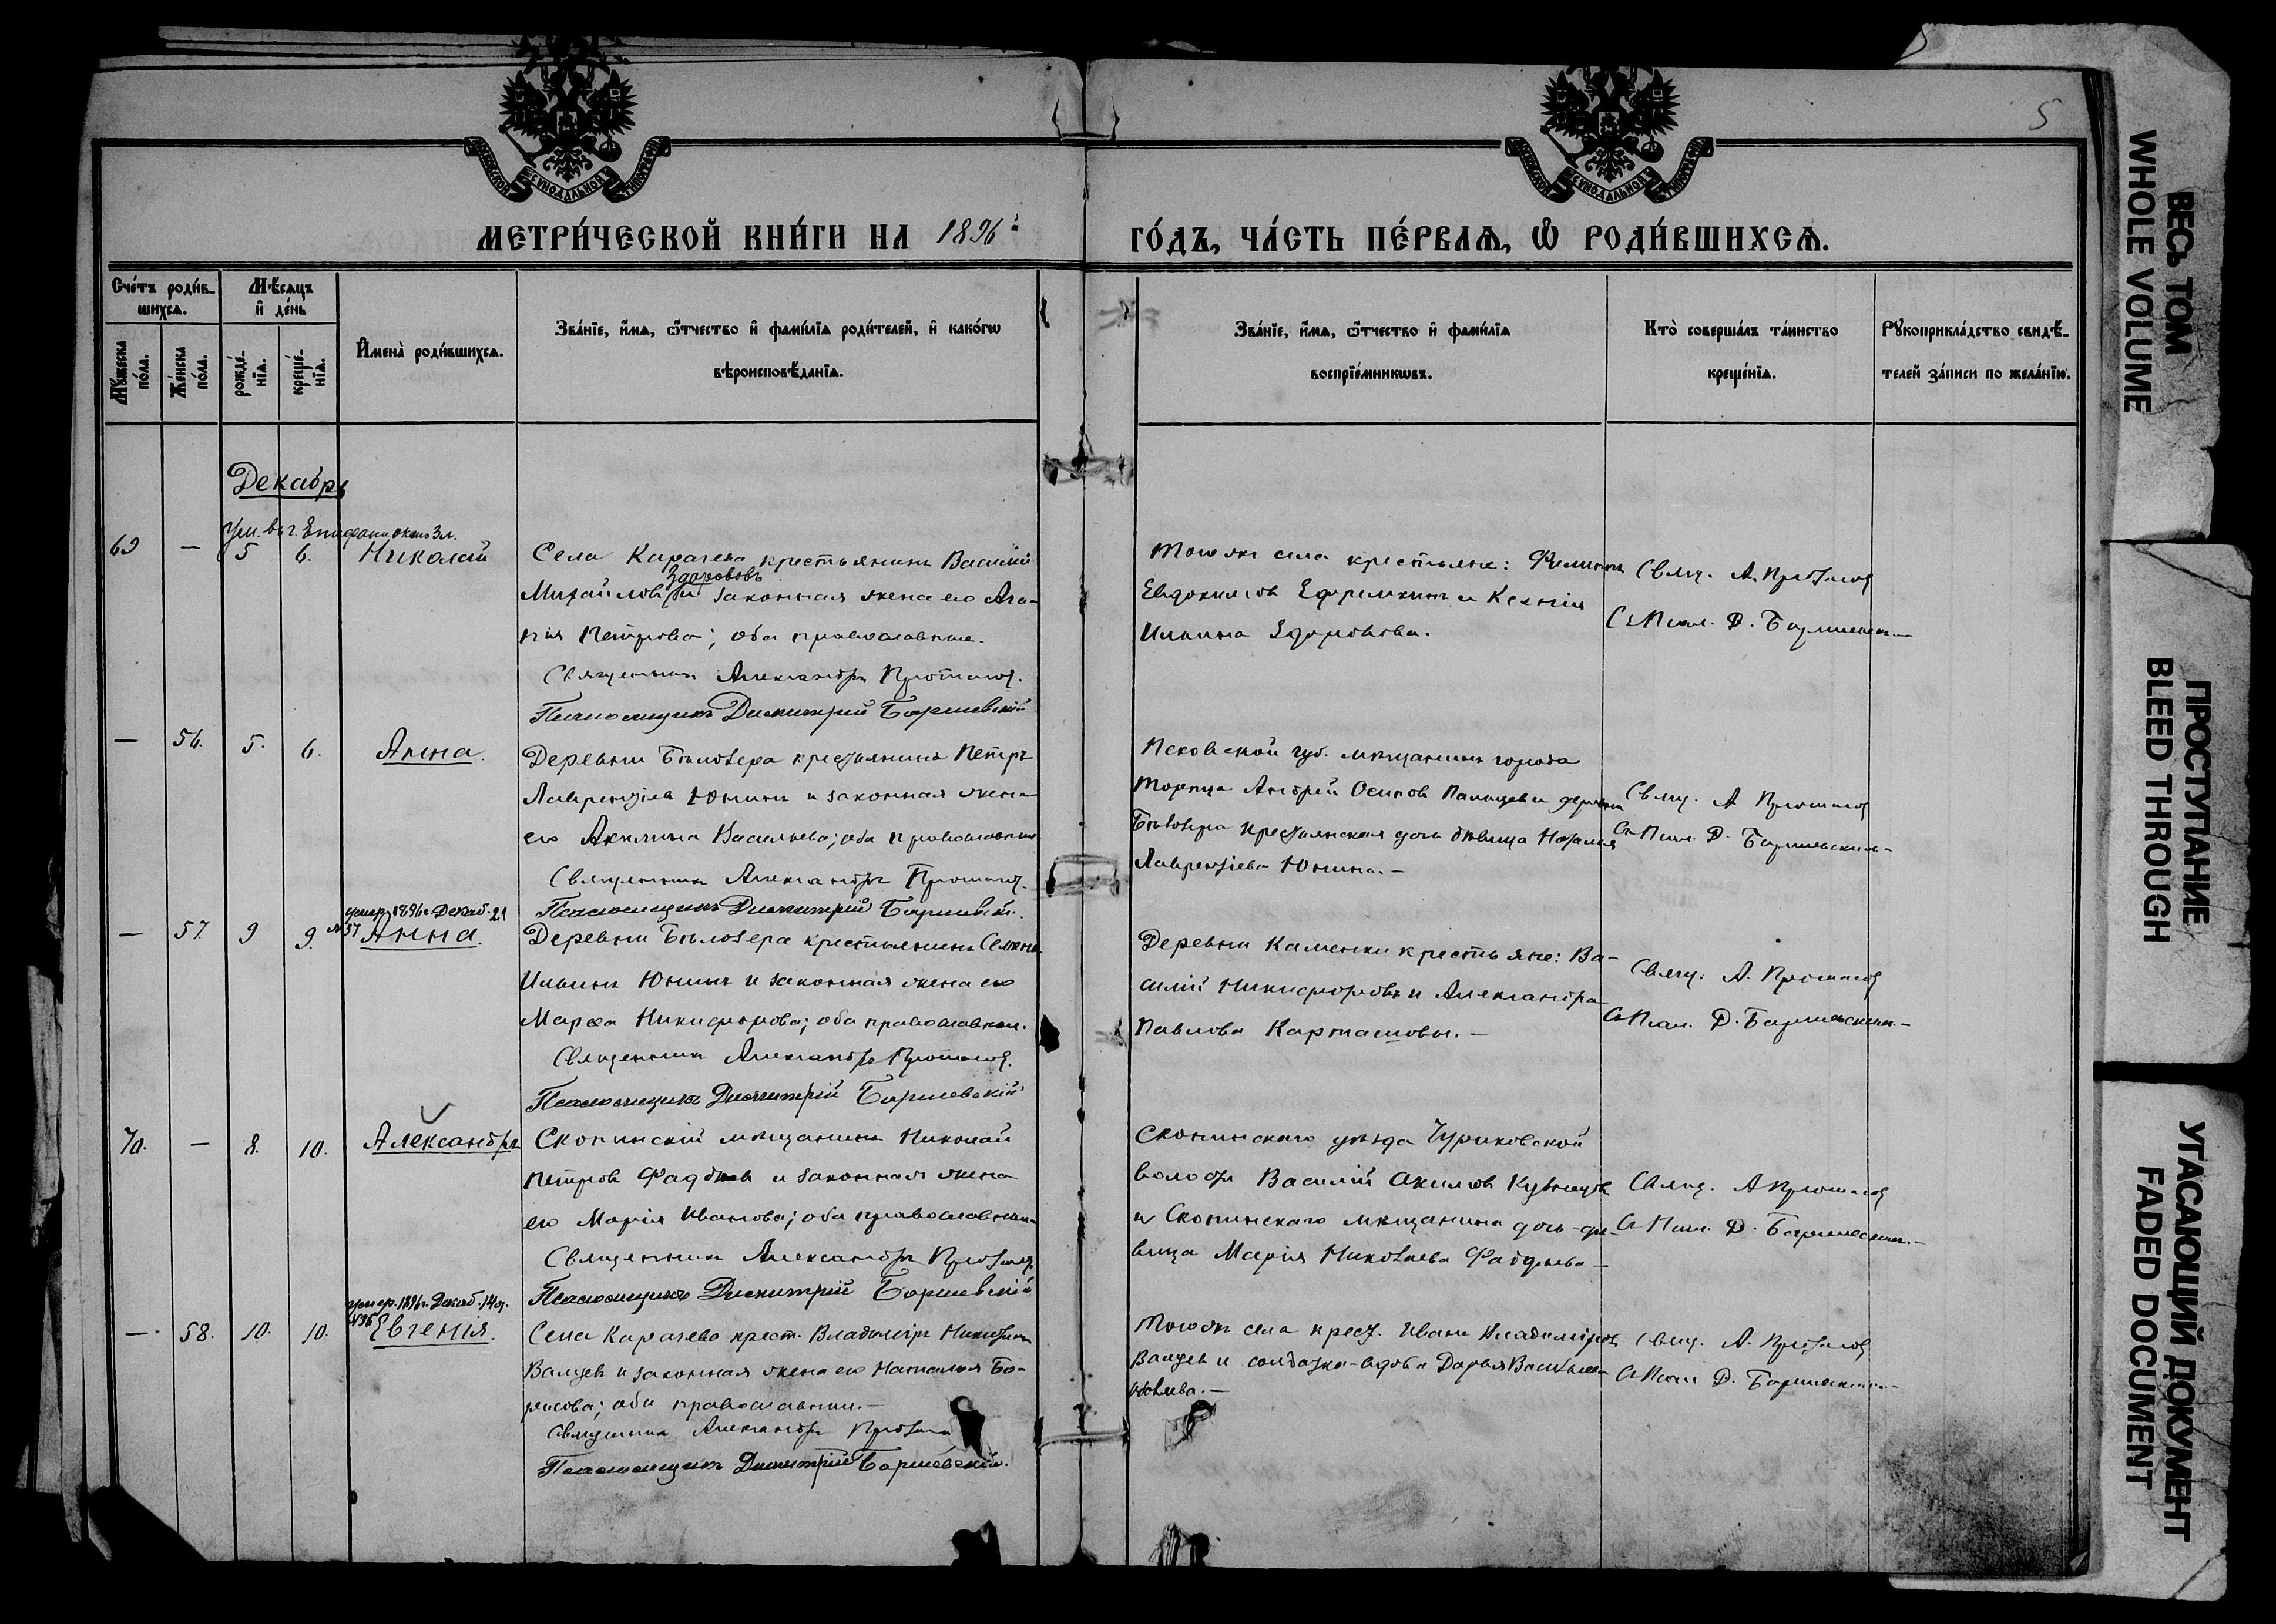 5
СѴНОДАЛЬНОЙ
СѴНОДАЛЬНОЙ
МЕТРИ́ЧЕСКОЙ КНИ́ГИ НА 1896й
ГО́ДЪ, ЧА́СТЬ ПЕ́РВАѦ, Ѿ РОДИ́ВШИХСѦ.
Сче́тъ роди́в-
шихсѧ.
Мѣ́сѧцъ
и де́нь
Мꙋ́жеска по́ла.
Же́нска по́ла.
рожде́-нїѧ.
креще́-нїѧ.
Имена̀ роди́вшихсѧ.
Зва́нїе, и́мѧ, ѻ́тчество и фами́лїѧ роди́телей, и како́гѡ
вѣроисповѣ́данїѧ.
Зва́нїе, и́мѧ, ѻ́тчество и фами́лїѧ
воспрїе́мникѡвъ.
Кто̀ соверша́лъ та́инство
креще́нїѧ.
Рꙋкоприкла́дство свидѣ́-
телей за́писи по жела́нїю.
Декабрь
Ум. въ г. Епифани
69 — 5 6. Николай
Села Карачева крестьянинъ Василій
Здорововъ
Михайловъ и законная жена его Ага-
пія Петрова; оба православные.
Священникъ Александръ Протасов.
Псаломщикъ Димитрій Боршевскій
Того же села крестьяне: Филиппъ
Евдокимов Ефремкинъ и Ксенія
Ильина Здоровова.
Свящ. А. Протасов
Съ Псал. Д. Боршевским
— 56. 5. 6. Анна.
Деревни Бѣлозера крестьянинъ Петръ
Лаврентіев Юнинъ и законная жена
его Акилина Васильева; оба православные
Священникъ Александръ Протасов.
Псаломщикъ Димитрій Боршевскій.
Псковской губ. мѣщанинъ города
Торопца Андрей Осипов Пальцев и деревни
Бѣлозера крестьянская дочь дѣвица Наталія
Лаврентіева Юнина. —
Свящ. А Протасов
Съ Псал. Д. Боршевским —
умер. 1896 г. Декаб. 21
№ 37
— 57. 9 9. Анна.
Деревни Бѣлозера крестьянинъ Семенъ
Ильинъ Юнинъ и законная жена его
Марѳа Никифорова; оба православные.
Священникъ Александръ Протасов.
Псаломщикъ Димитрій Боршевскій
Деревни Каменки крестьяне: Ва-
силій Никифоровъ и Александра
Павлова Карташовы. —
Свящ. А. Протасов
Съ Псал. Д. Боршевским. —
70. — 8. 10. Александръ
Скопинскій мѣщанинъ Николай
Петров Фаддѣев и законная жена
его Марія Иванова; оба православные
Священникъ Александръ Протасов.
Псаломщикъ Димитрій Боршевскій
Скопинскаго уѣзда Чуриковской
волости Василій Акимов Кузнецов
и Скопинскаго мѣщанина дочь дѣ-
вица Марія Николаева Фаддѣева —
Свящ. А Протасов
Съ Псал. Д. Боршевским. —
умер. 1896 г. Декаб. 14 д.
№ 36
— 58. 10. 10. Евгенія.
Села Карачева крест. Владиміръ Никитинъ
Валуев и законная жена его Наталія Бо-
рисова; оба православные. —
Священникъ Александръ Протасов
Псаломщикъ Димитрій Боршевскій.
Того же села крест. Иванъ Владиміров
Валуев и солдатка-вдова Дарья Васильева
Свящ. А. Протасов
Съ Псал. Д. Боршевским —
ВЕСЬ ТОМ
WHOLE VOLUME
ПРОСТУПАНИЕ
BLEED THROUGH
УГАСАЮЩИЙ ДОКУМЕНТ
FADED DOCUMENT